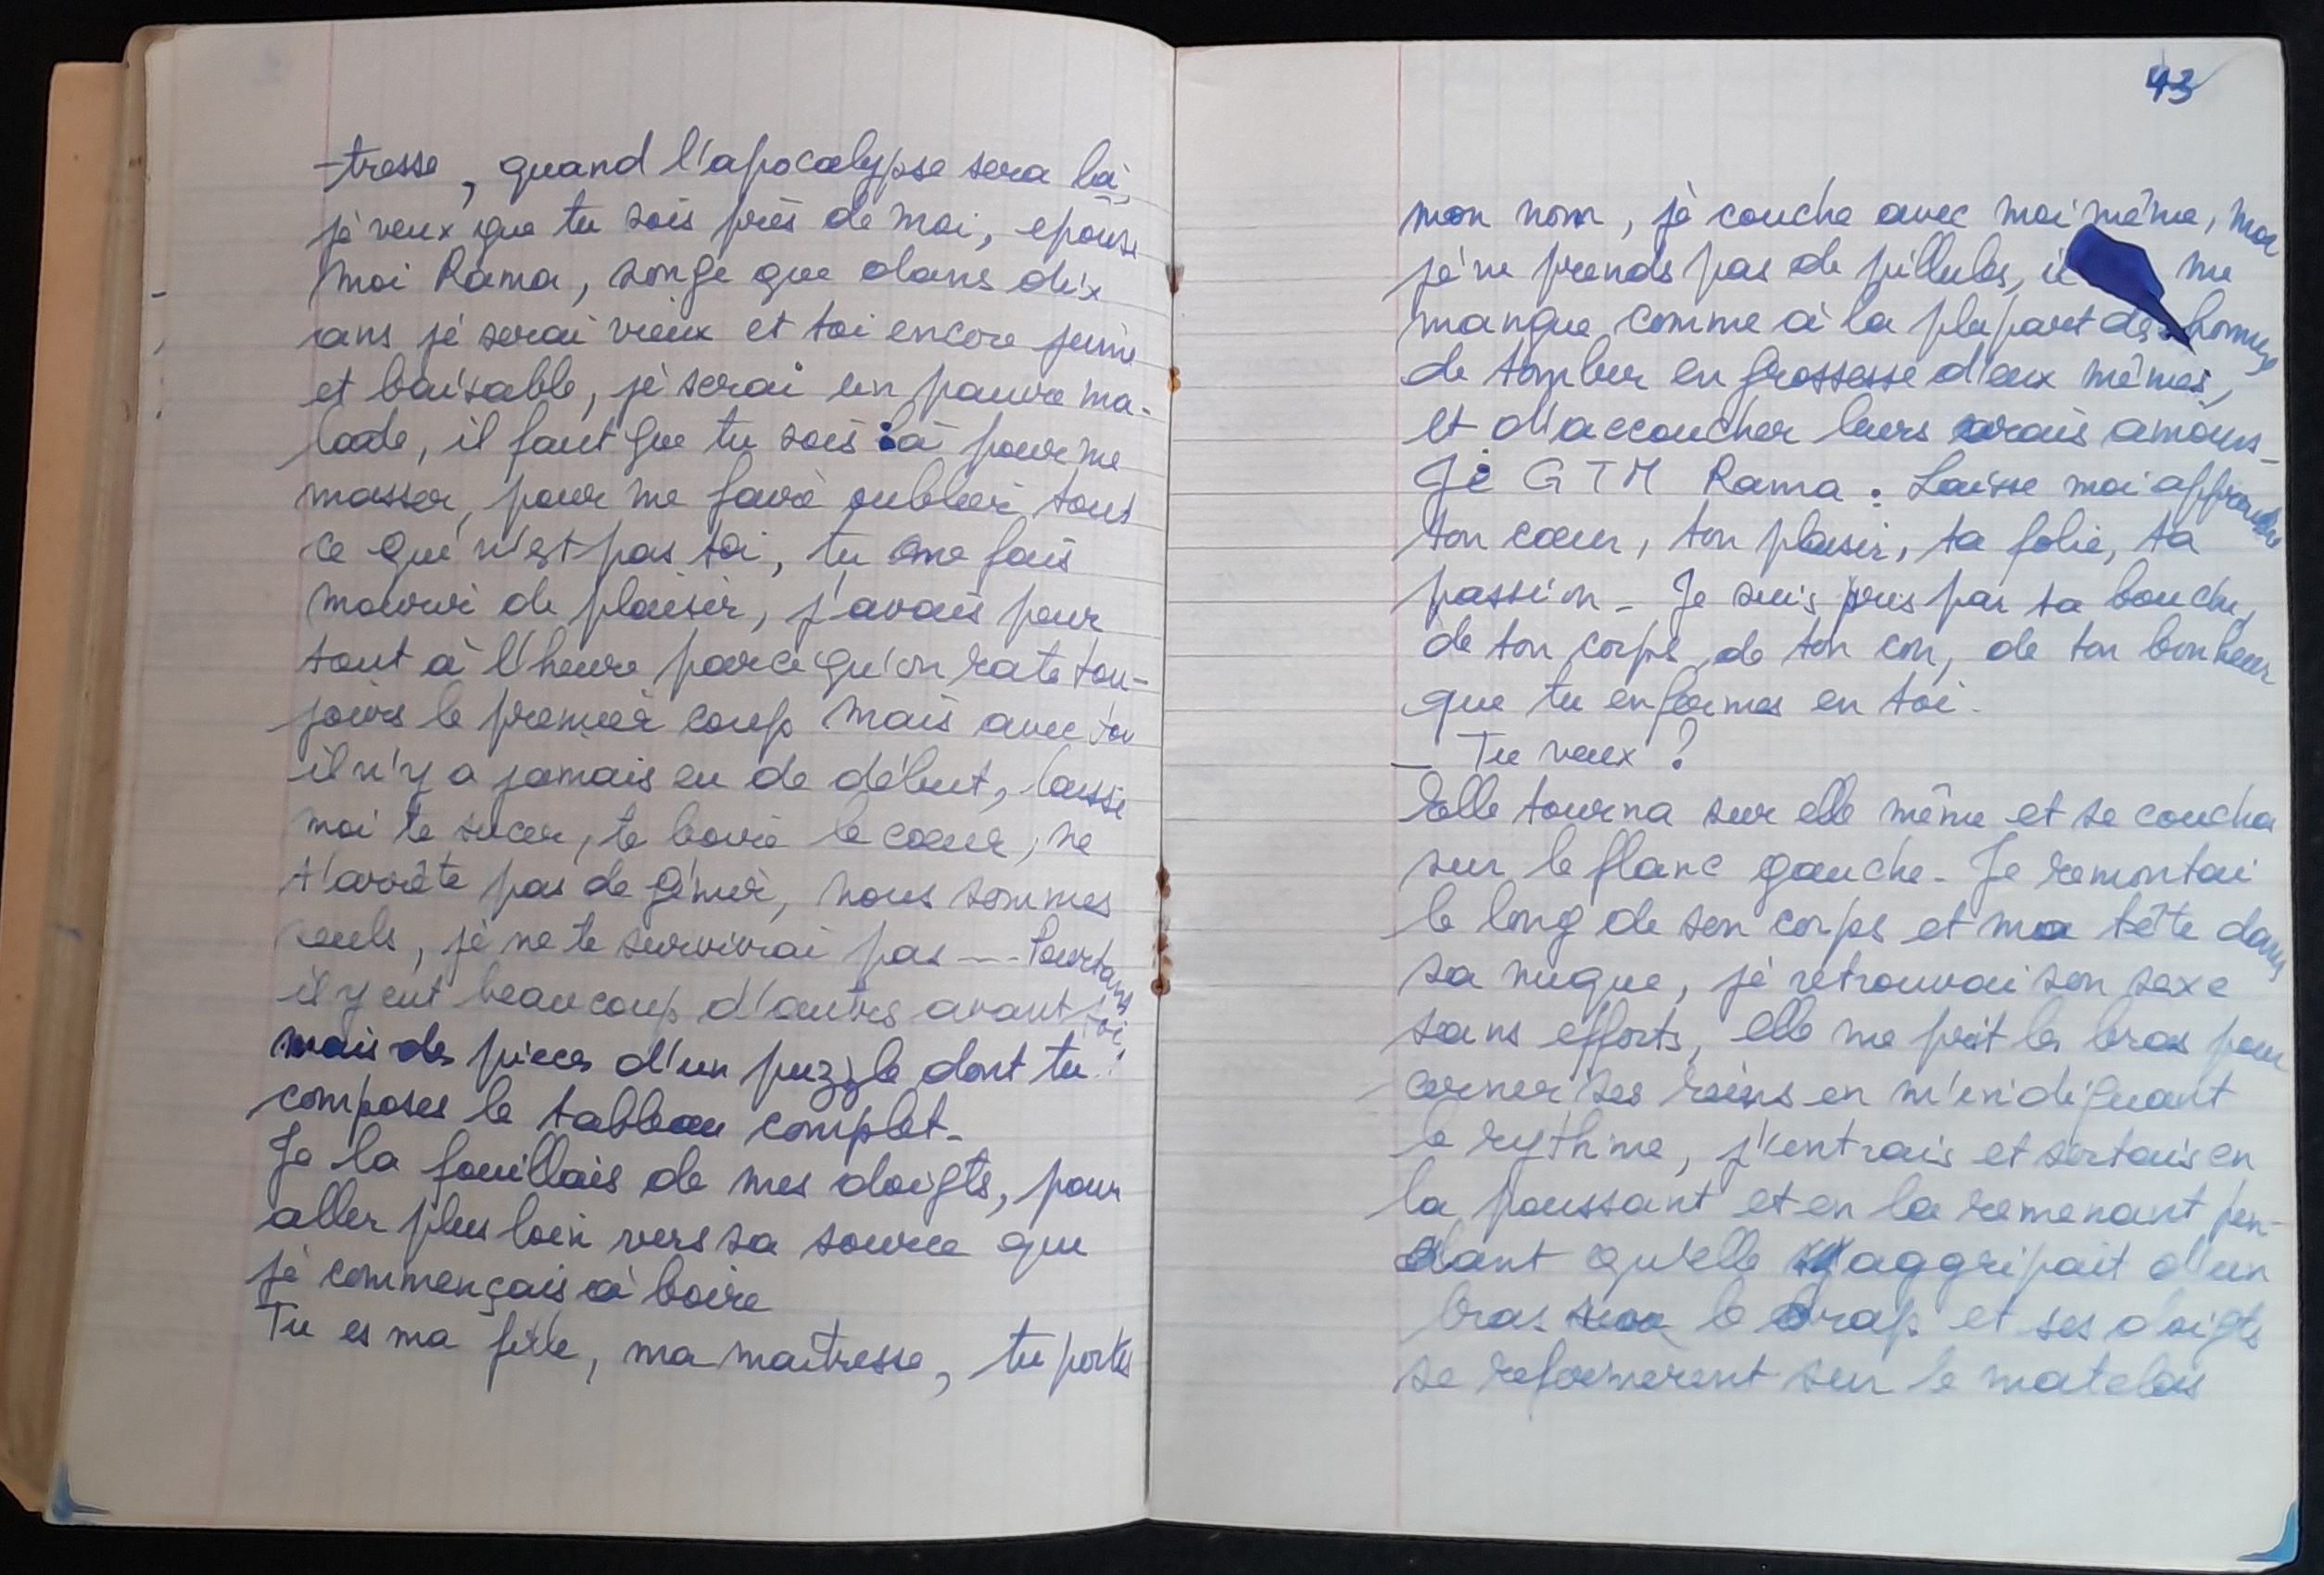 -tresse, quand l'apocalypse sera là,
je veux que tu sois près de moi, epouse
moi Rama, songe que dans dix
ans je serai vieux et toi encore jeune
et baisable, je serai un pauvre ma-
lade, il faut que tu sois là pour me
masser, pour me faire oublier tout
ce qui n'est pas toi, tu me fais
mourir de plaisir, j'avais peur
tout à l'heure parce qu'on rate tou-
jours le premier coup mais avec toi
il n'y a jamais eu de début, laisse
moi te sucer, te boire le coeur, ne
t'arrête pas de gémir, nous sommes
seuls, je ne te survivrai pas --- Pourtant
il y eut beaucoup d'autres avant toi
mais des pieces d'un puzzle dont tu
composes le tableau complet-
Je la fouillais de mes doigts, pour
aller plus loin vers sa source que
je commençais à boire
Tu es ma fille, ma maitresse, tu portes
43
mon nom, je couche avec moi même, moi
je ne prends pas de pillules, il me
manque comme à la plupart des hommes
de tomber en grossesse d'eux mêmes,
et d'accoucher leurs vrais amours-
Je G T M Rama. Laisse moi apprendre
ton coeur, ton plaisir, ta folie, ta
passion - Je suis pris par ta bouche,
de ton corps, de ton con, de ton bonheur
que tu enfermes en toi.
_ Tu veux ?
Elle tourna sur elle même et se coucha
sur le flanc gauche - Je remontai
le long de son corps et ma tête dans
sa nuque, je retrouvai son sexe
sans efforts, elle me prit les bras pour
cerner ses reins en m'indiquant
le rythme, j'entrais et sortais en
la poussant et en la ramenant pen-
dant qu'elle aggripait d'un
bras le drap et ses doigts
se refermerent sur le matelas